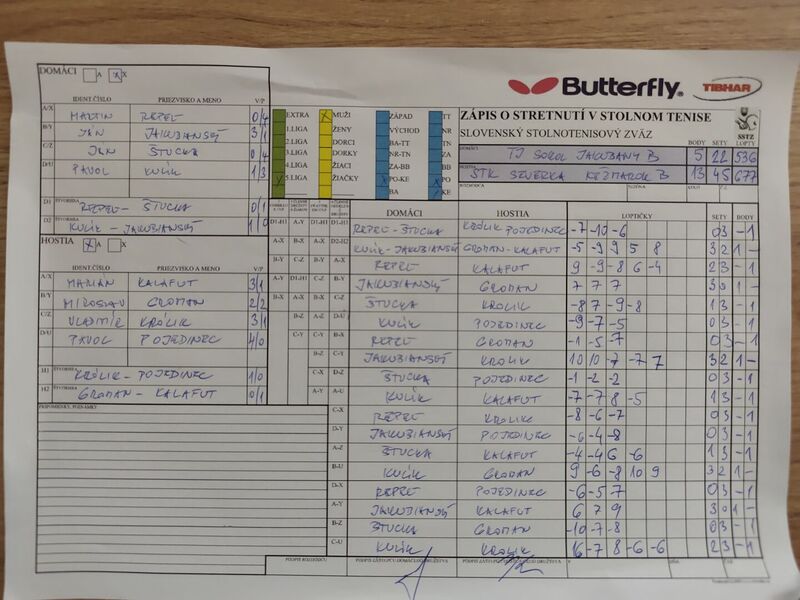 DOMÁCI A X
IDENT.ČÍSLO PRIEZVISKO A MENO V/P
A/X MARTIN REPEL 0/4
B/Y JÁN JAKUBIANSKÝ 3/1
C/Z JÁN ŠTUCKA 0/4
D/U PAVOL KULÍK 1/3
D1 ŠTVORHRA REPEL - ŠTUCKA 0/1
D2 KULÍK - JAKUBIANSKÝ 1/0
HOSTIA A X
IDENT.ČÍSLO PRIEZVISKO A MENO V/P
A/X MARIÁN KALAFUT 3/1
B/Y MIROSLAV GROMAN 2/2
C/Z VLADIMÍR KRÓLIK 3/1
D/U PAVOL POJEDINEC 4/0
H1 ŠTVORHRA KRÓLIK - POJEDINEC 1/0
H2 ŠTVORHRA GROMAN - KALAFUT 0/1
PRIPOMIENKY, POZNÁMKY
EXTRA MUŽI ZÁPAD TT
1.LIGA ŽENY VÝCHOD NR
2.LIGA DORCI BA-TT TN
3.LIGA DORKY NR-TN ZA
4.LIGA ŽIACI ZA-BB BB
5.LIGA ŽIAČKY PO-KE PO
BA KE
Butterfly TIBHAR
ZÁPIS O STRETNUTÍ V STOLNOM TENISE
SLOVENSKÝ STOLNOTENISOVÝ ZVÄZ
SSTZ
BODY SETY LOPTY
DOMÁCI TJ SOKOL JAKUBANY B 5 22 536
HOSTIA STK SEVERKA KEŽMAROK B 13 45 677
DOMÁCI HOSTIA LOPTIČKY SETY BODY
D1-H1 REPEL - ŠTUCKA KRÓLIK POJEDINEC -7 -10 -6 03 -1
D2-H2 KULÍK - JAKUBIANSKÝ GROMAN - KALAFUT -5 -9 9 5 8 32 1-
A-X REPEL KALAFUT 9 -9 -8 6 -4 23 -1
B-Y JAKUBIANSKÝ GROMAN 7 7 7 30 1-
C-Z ŠTUCKA KROLIK -8 7 -9 -8 13 -1
D-U KULÍK POJEDINEC -9 -7 -5 03 -1
A-Y REPEL GROMAN -1 -5 -7 03 -1
B-X JAKUBIANSKÝ KROLIK 10 10 -7 -7 7 32 1-
ŠTUCKA POJEDINEC -1 -2 -2 03 -1
A-U KULÍK KALAFUT -7 -7 8 -5 13 -1
C-X REPEL KROLIK -8 -6 -7 03 -1
D-Y JAKUBIANSKÝ POJEDINEC -6 -4 -8 03 -1
A-Z ŠTUCKA KALAFUT -4 -4 6 -6 13 -1
B-U KULÍK GROMAN 9 -6 -8 10 9 32 1-
D-X REPEL POJEDINEC -6 -5 7 03 -1
A-Y JAKUBIANSKÝ KALAFUT 6 7 9 30 1-
B-Z ŠTUCKA GROMAN -10 -7 -8 03 -1
C-U KULÍK KROLIK 16 -7 8 -6 -6 23 -1
PODPIS ROZHODCU PODPIS ZÁSTUPCU DOMÁC.DRUŽSTVA PODPIS ZÁSTUPCU HOSŤ.DRUŽSTVA V DŇA